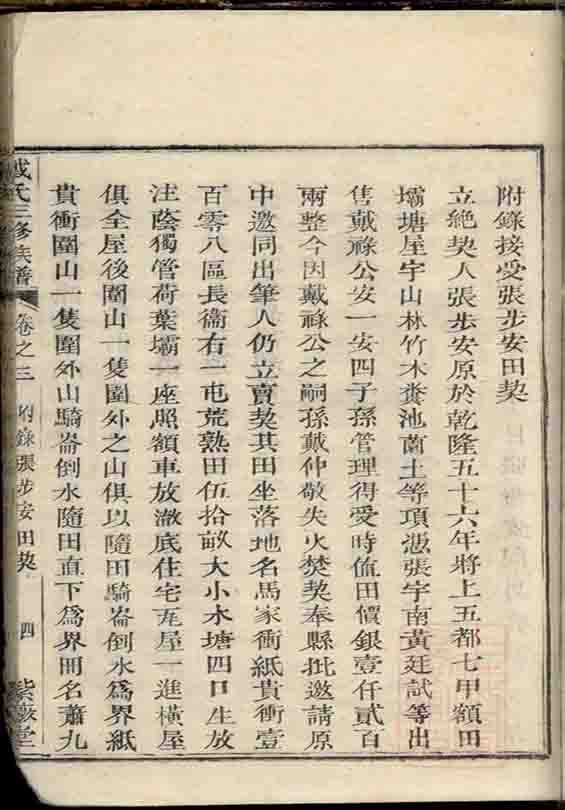 附錄接受張步安田契
立絶契人張步安原於乾隆五十六年將上五都七甲額田
壩塘屋宇山林竹木糞池薗土等項憑張宇南黃廷試等出
售戴祿公安一安四子孫管理得受時值田價銀壹仟貳百
兩整今因戴祿公之嗣孫戴仲敬失火焚契奉縣批邀請原
中邀同出筆人仍立賣契其田坐落地名馬家衝紙貴衝壹
百零八區長衞右一屯荒熟田伍拾畝大小水塘四口生放
注蔭獨管荷葉壩一座照額車放澈底住宅瓦屋一進橫屋
俱全屋後圍山一隻圍外之山俱以隨田騎崙倒水爲界紙
貴衝圍山一隻圍外山騎崙倒水隨田直下爲界冊名蕭九
氏三修族譜 卷之三 附錄張步安田契 四 紫